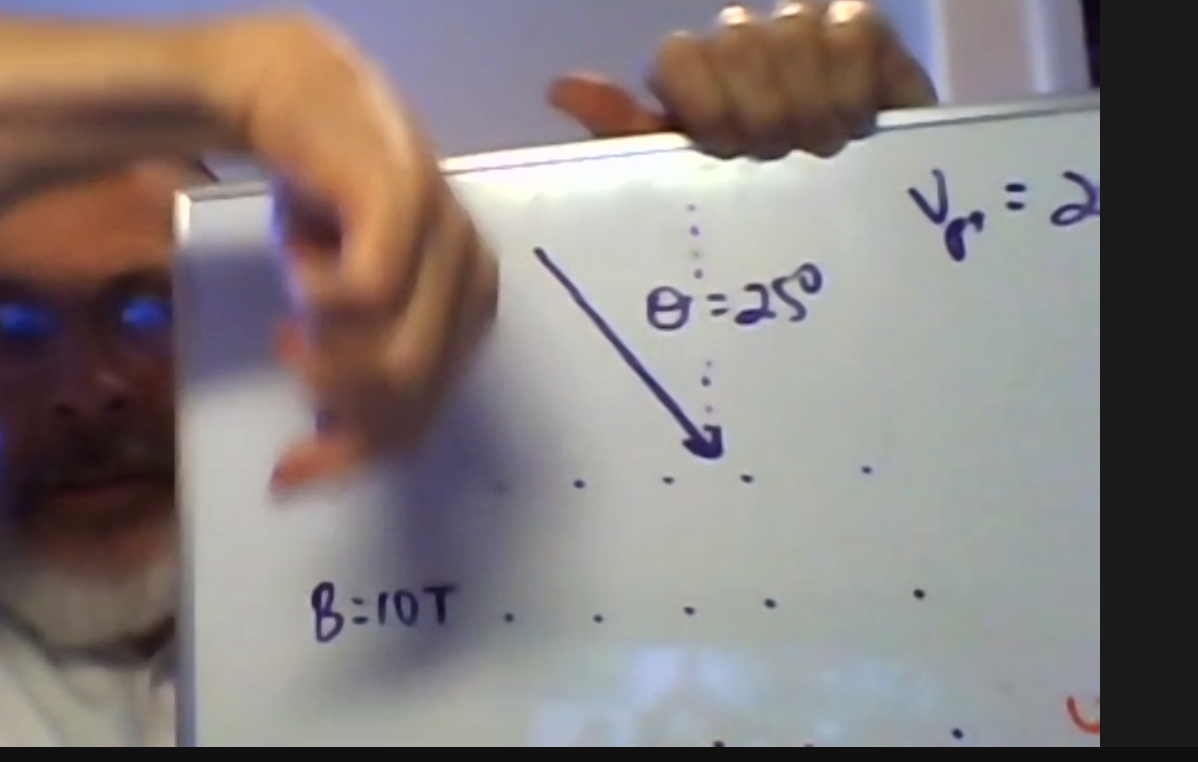 V = 2
θ = 25°
B = 10T